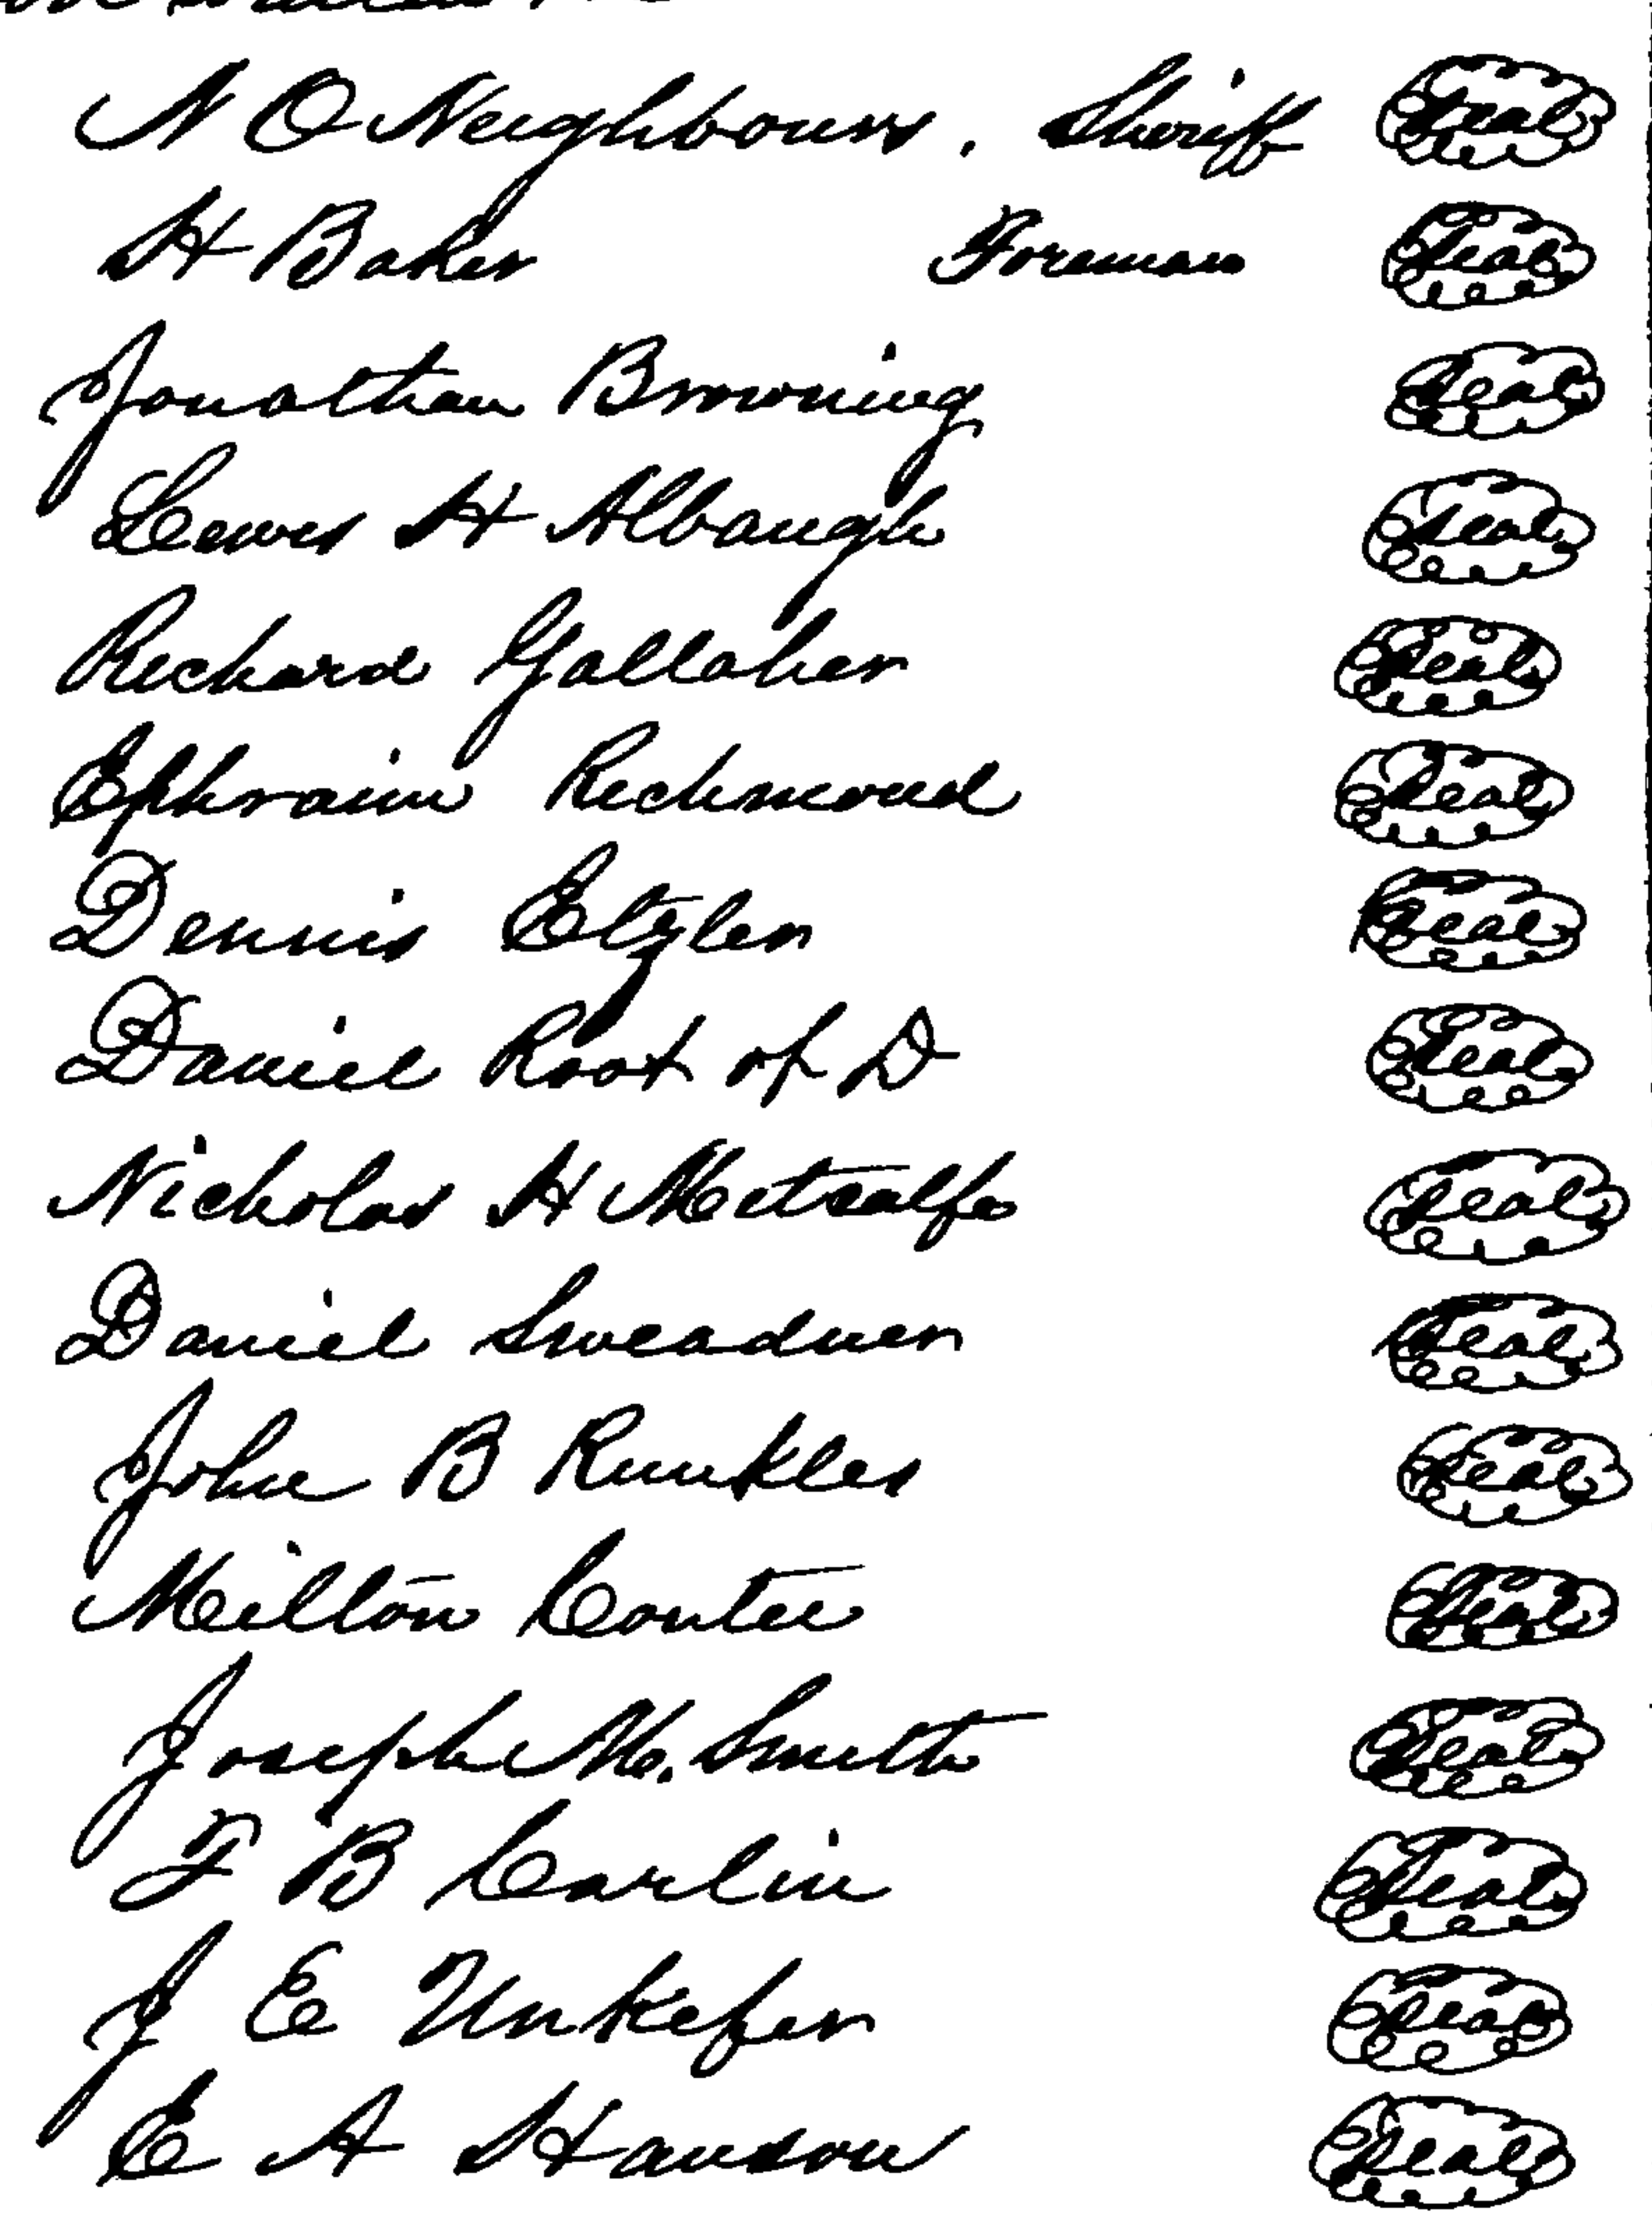 N O Neighbours. Sheriff Seal
H Baker Foreman Seal
Jonathan Browning Seal
Lewis H Albaugh Seal
Richard Gallaher Seal
Ephraim Richmond Seal
Dennis Etzler Seal
Daniel Root of D Seal
Nicholas H Metcalfe Seal
Daniel Sweadner Seal
John B Runkles Seal
Milton Coutee Seal
Joseph M. Smith Seal
F B Carlin Seal
J E Unkefer Seal
E A Hanson Seal